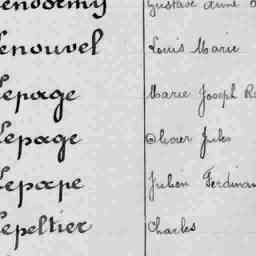 Gustave Aimé
enouvel Louis Marie
epage Marie Joseph R
epage Oliver Jules
epape Julien Ferdinan
epeltier Charles